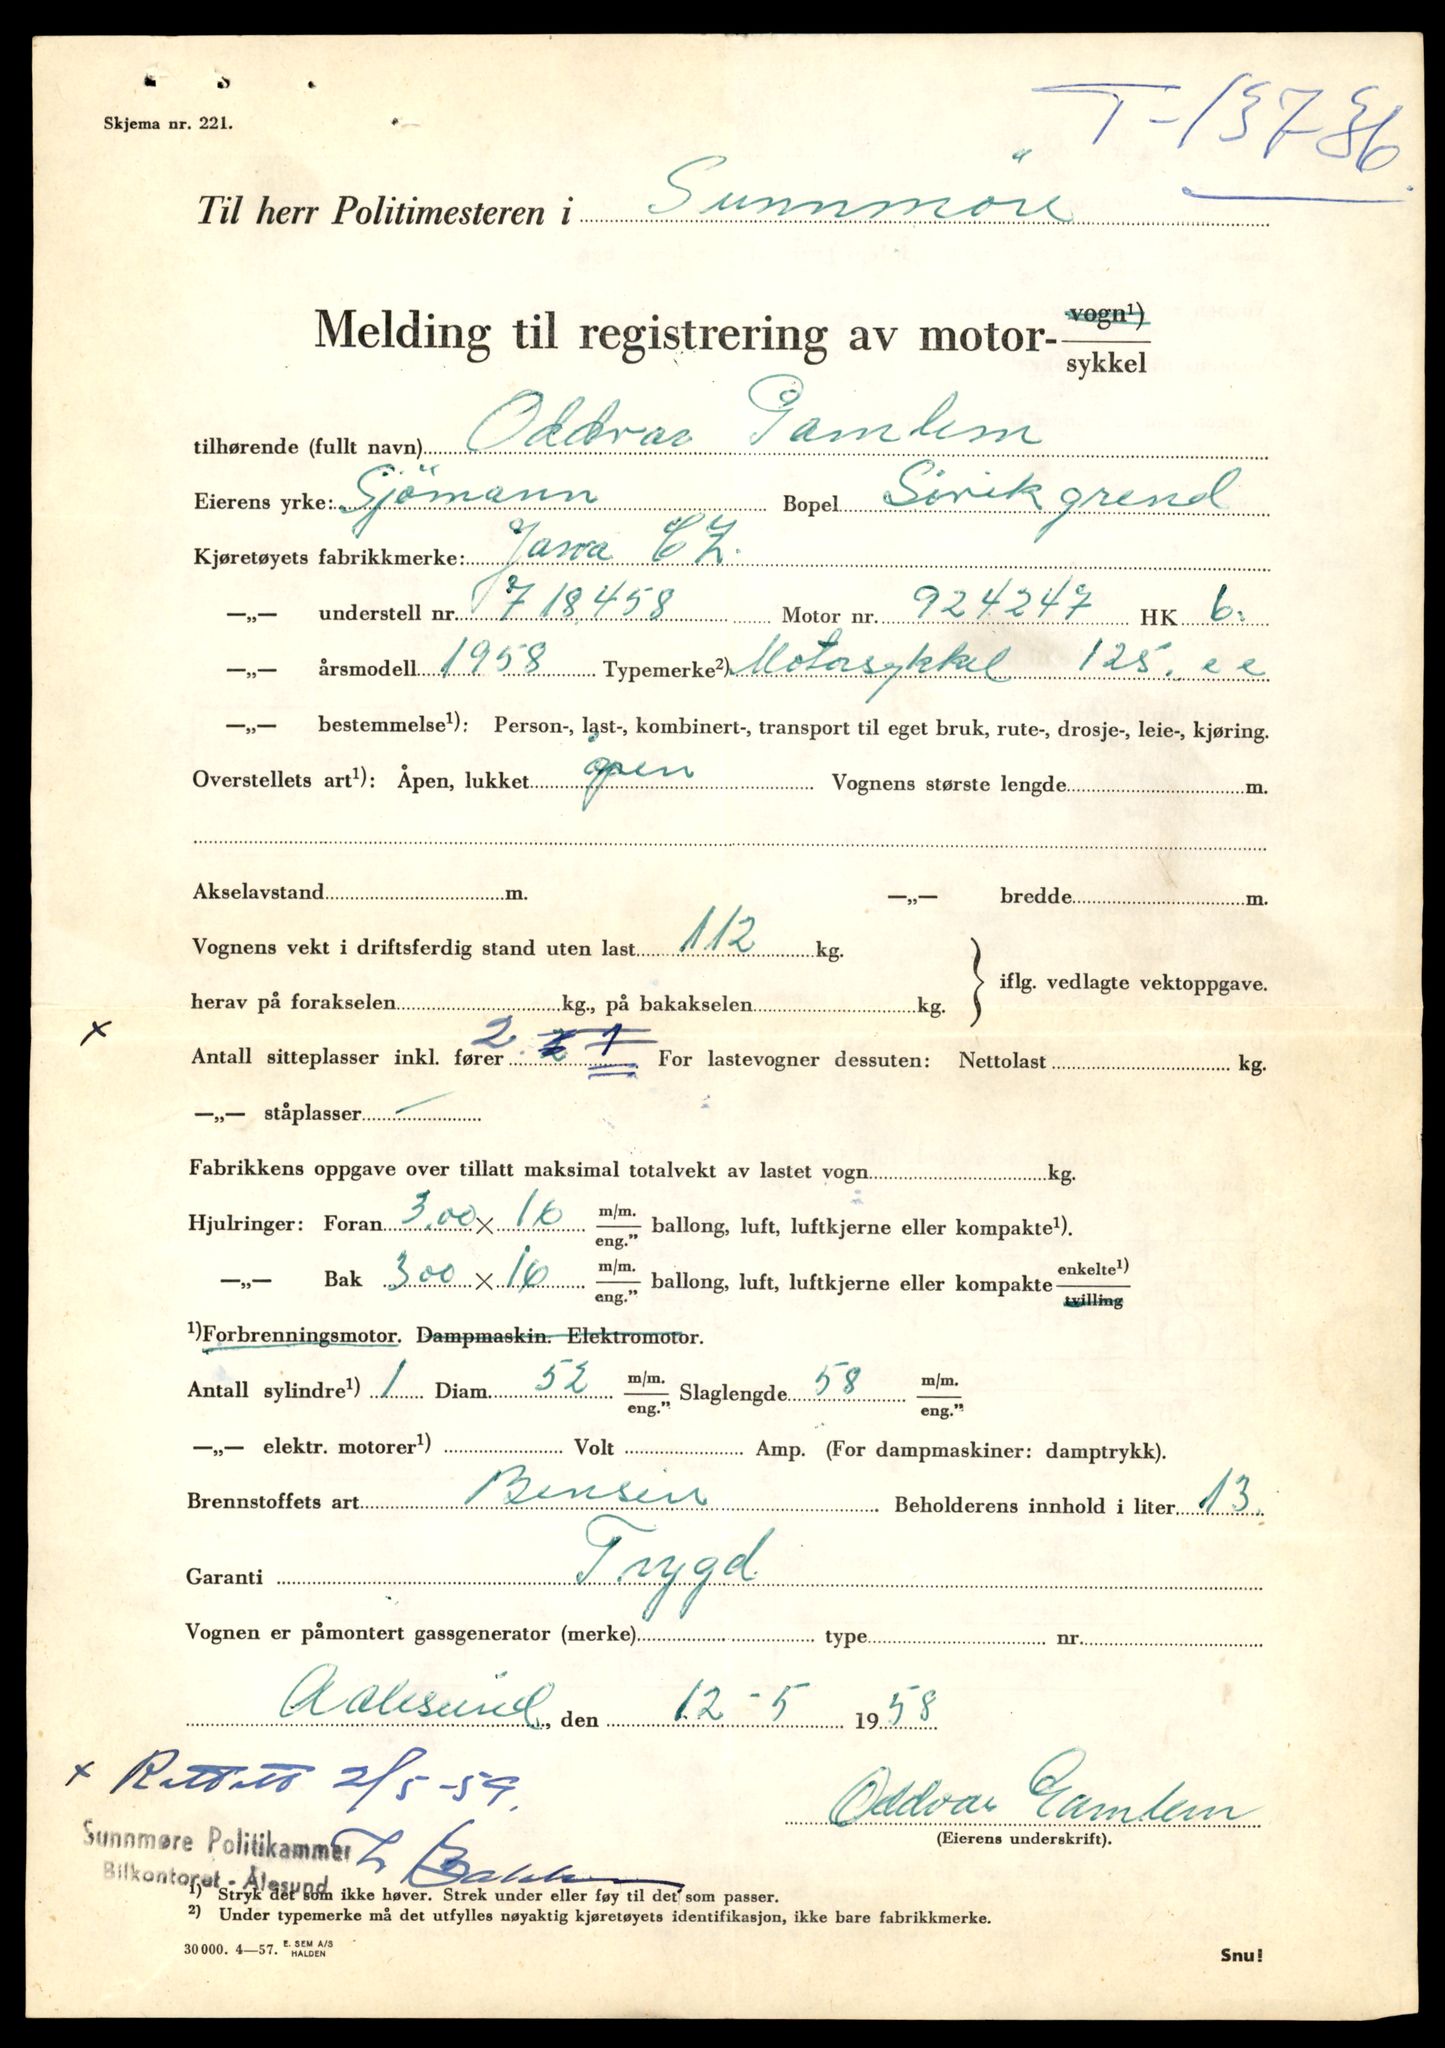 T-13736.
Skjema nr. 221.
Til herr Politimesteren i Sunnmöre
Melding til registrering av motor- vogn¹) sykkel
tilhørende (fullt navn) Oddvar Gamlem
Eierens yrke: Sjömann Bopel Sövik grend
Kjøretøyets fabrikkmerke: Jawa CZ.
—„— understell nr. 718458 Motor nr. 924247 HK 6.
—„— årsmodell 1958 Typemerke²) Motorsykkel 125. cc
—„— bestemmelse¹): Person-, last-, kombinert-, transport til eget bruk, rute-, drosje-, leie-, kjøring.
Overstellets art¹): Åpen, lukket åpen Vognens største lengde m.
Akselavstand m. —„— bredde m.
Vognens vekt i driftsferdig stand uten last 112 kg.
herav på forakselen kg., på bakakselen kg. } iflg. vedlagte vektoppgave.
x Antall sitteplasser inkl. fører 2 2 1 For lastevogner dessuten: Nettolast kg.
—„— ståplasser —
Fabrikkens oppgave over tillatt maksimal totalvekt av lastet vogn kg.
Hjulringer: Foran 3.00 × 16 m/m. eng.” ballong, luft, luftkjerne eller kompakte¹).
—„— Bak 300 × 16 m/m. eng.” ballong, luft, luftkjerne eller kompakte enkelte¹) tvilling
¹)Forbrenningsmotor. Dampmaskin. Elektromotor.
Antall sylindre¹) 1 Diam. 52 m/m. eng.” Slaglengde 58 m/m. eng.”
—„— elektr. motorer¹) Volt Amp. (For dampmaskiner: damptrykk).
Brennstoffets art Bensin Beholderens innhold i liter 13.
Garanti Trygd
Vognen er påmontert gassgenerator (merke) type nr.
Aalesund, den 12-5 1958
x Rettet 2/5-59.
Oddvar Gamlem
(Eierens underskrift).
Sunnmøre Politikammer
Bilkontoret - Ålesund
¹) Stryk det som ikke høver. Strek under eller føy til det som passer.
²) Under typemerke må det utfylles nøyaktig kjøretøyets identifikasjon, ikke bare fabrikkmerke.
30 000. 4—57. E. SEM A/S HALDEN
Snu!